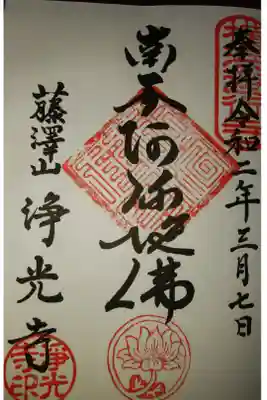 奉拝令和二年三月七日
南无阿弥陀佛
藤澤山
浄光寺
淨光寺印